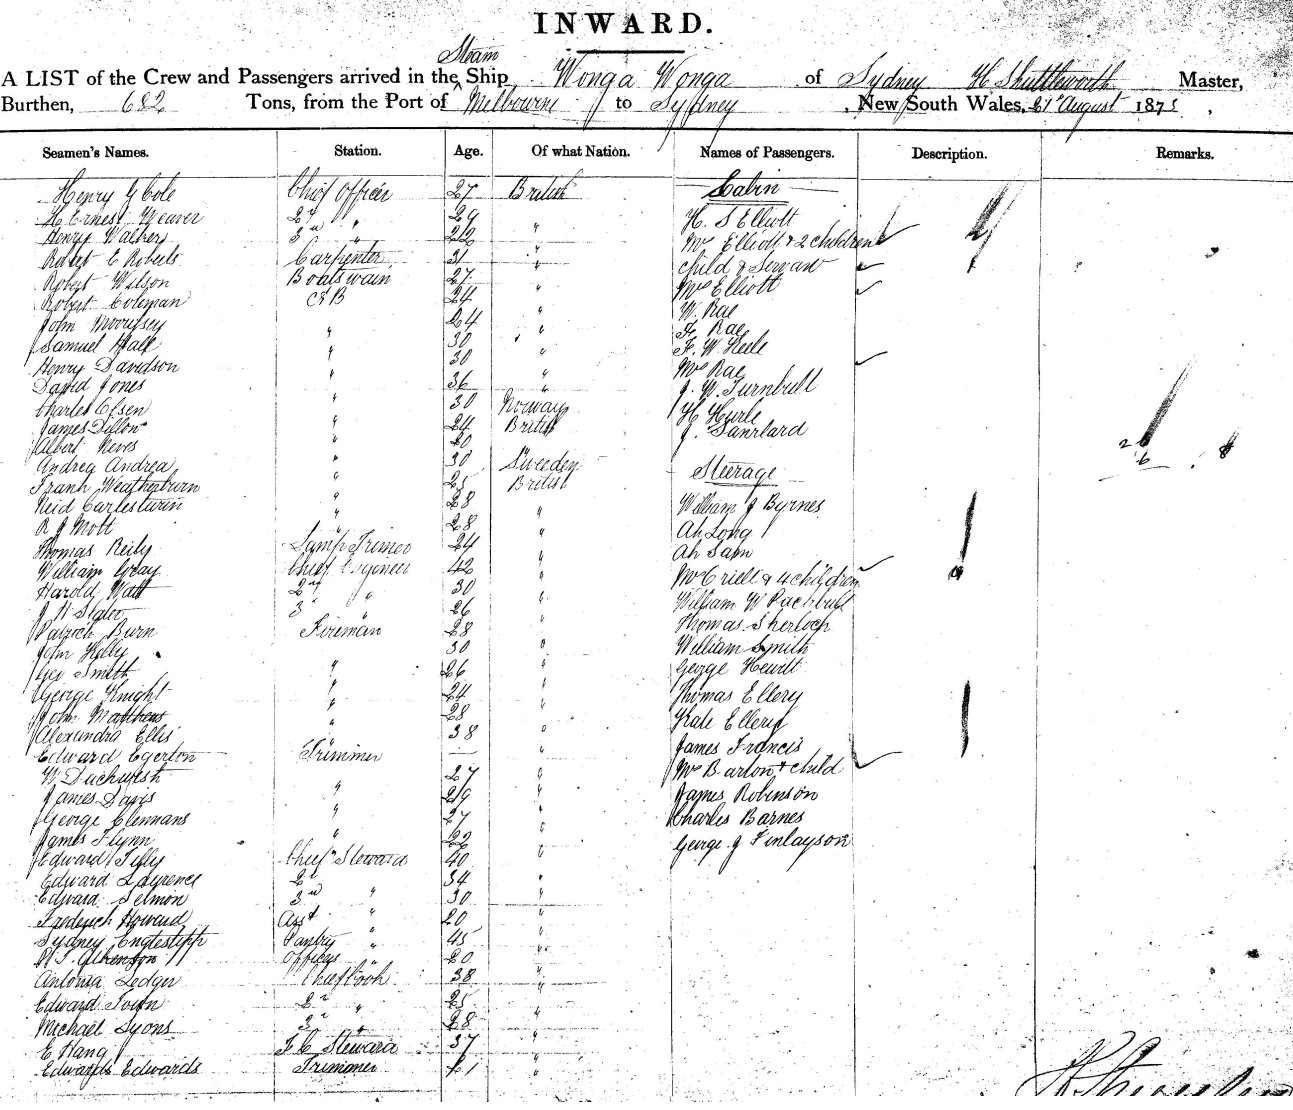 INWARD.
Steam
A LIST of the Crew and Passengers arrived in the ^ Ship Wonga Wonga of Sydney H. Shuttleworth Master,
Burthen, 682 Tons, from the Port of Melbourne to Sydney, New South Wales, 21st August 1875,
Seamen's Names. Station. Age. Of what Nation. Names of Passengers. Description. Remarks.
Henry G Cole Chief Officer 27 British
H Ernest Weaver 2nd " 29 "
Henry Walker 3rd " 22 "
Robert C Roberts Carpenter 31 "
Robert Wilson Boatswain 27 "
Robert Coleman 24 "
John Morrissey " 24 "
Samuel Hall " 30 "
Henry Davidson " 30 "
David Jones " 36 "
Charles Olsen " 30 Norway
James Dillon " 24 British
Albert " 20
Andrea Andrea " 30 Sweden
Frank Weatherburn " 25 British
" 28 "
R J Mott " 28 "
Thomas Reily Lamp Trimer 24 "
William Gray Chief Engineer 42 "
Harold Watt 2nd " 30 "
J H Slater 3rd " 26 "
Patrick Burn Fireman 28 "
John Kelly 30 "
Geo Smith " 26 "
George Knight " 24 "
John Matthews " 28 "
Alexandra Ellis " 38 "
Edward Egerton Trimmer — "
W 27 "
James Davis " 29 "
George Clennans " 27 "
James Flynn " 22 "
Edward Tilly Chief Steward 40 "
Edward Lawrence 2d 34 "
Edward Selmon 3rd " 30 "
Frederick Howard Asst " 20 "
Sydney Pantry " 45 "
Officers " 20 "
Antonia Ledger Chief Cook 38 "
Edward 2nd " 25 "
Michael Lyons 3rd " 28 "
E Hang F C Steward 37 "
Edwards Trimmer 21 "
Cabin
H. S Elliott
Mrs Elliott & 2 children
child & Servant
Mrs Elliott
W. Rae
F. Rae
F. W. Steele
Mrs Rae
J. W. Turnbull
H Hurle
J.
Steerage
William J Byrnes
Ah Long
Ah Sam
Mrs Criell & 4 children
William W
Thomas Sherlock
William Smith
George Hewitt
Thomas Ellery
Kate Ellery
James Francis
Mrs Barton & child
James Robinson
Charles Barnes
George J Finlayson
2
6
8